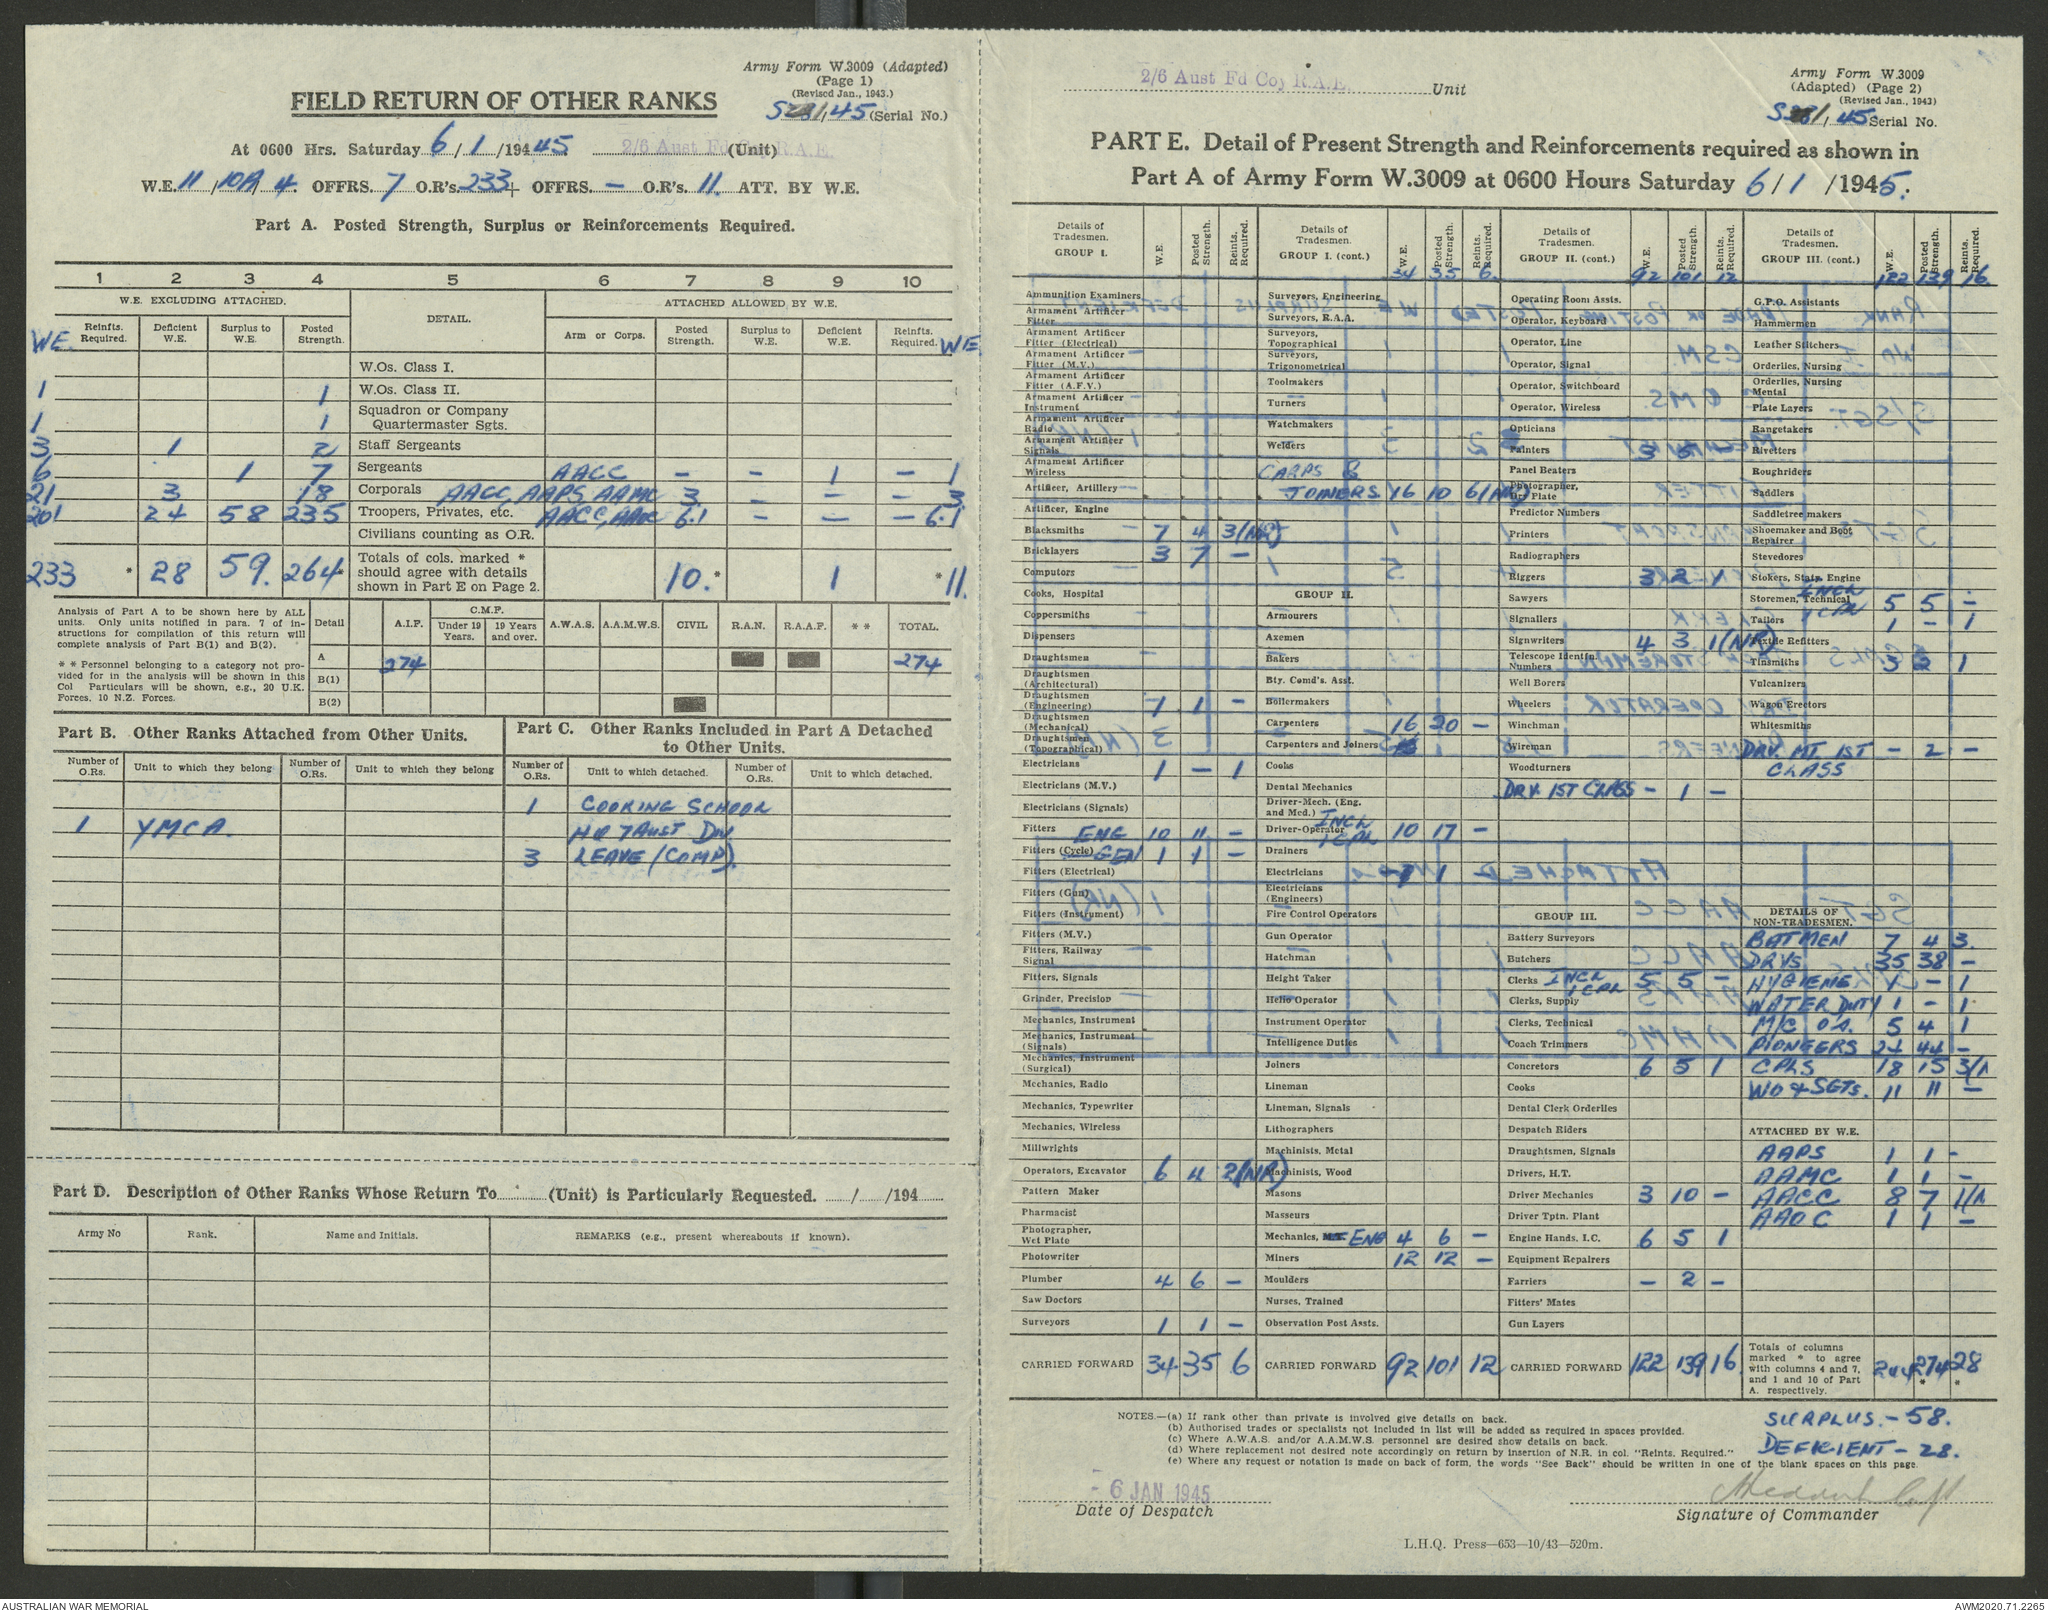 Army Form W.3009 (Adapted)
(Page 1)
(Revised Jan., 1943.)
FIELD RETURN OF OTHER RANKS
(Serial No.)
At 0600 Hrs. Saturday 6/1/1945 2/6 Aust Fd Coy R.A.E. (Unit)
W.E. 11/10A/4. OFFRS. 7 O.R's. 233+ OFFRS. — O.R's. 11. ATT. BY W.E.
Part A. Posted Strength, Surplus or Reinforcements Required.
1 2 3 4 5 6 7 8 9 10
W.E. EXCLUDING ATTACHED. DETAIL. ATTACHED ALLOWED BY W.E.
WE. Reinfts. Required. Deficient W.E. Surplus to W.E. Posted Strength. Arm or Corps. Posted Strength. Surplus to W.E. Deficient W.E. Reinfts. Required. WE.
W.Os. Class I.
1 1 W.Os. Class II.
1 1 Squadron or Company Quartermaster Sgts.
3 1 2 Staff Sergeants
6 1 7 Sergeants AACC — — 1 — 1
21 3 18 Corporals AACC, AAPS, AAMC 3 — — — 3
201 24 58 235 Troopers, Privates, etc. AACC, 6.1 — — — 6.1
Civilians counting as O.R.
233 * 28 59. 264* Totals of cols. marked * should agree with details shown in Part E on Page 2. 10.* 1 * 11.
Analysis of Part A to be shown here by ALL units. Only units notified in para. 7 of instructions for compilation of this return will complete analysis of Part B(1) and B(2).
* * Personnel belonging to a category not provided for in the analysis will be shown in this Col Particulars will be shown, e.g., 20 U.K. Forces, 10 N.Z. Forces.
Detail A.I.F. C.M.F. Under 19 Years. 19 Years and over. A.W.A.S. A.A.M.W.S. CIVIL R.A.N. R.A.A.F. * * TOTAL.
A 274 274
B(1)
B(2)
Part B. Other Ranks Attached from Other Units.
Number of O.Rs. Unit to which they belong Number of O.Rs. Unit to which they belong
1 YMCA.
Part C. Other Ranks Included in Part A Detached to Other Units.
Number of O.Rs. Unit to which detached. Number of O.Rs. Unit to which detached.
1 COOKING SCHOOL
HQ 7 AUST DIV
3 LEAVE (COMP).
Part D. Description of Other Ranks Whose Return To (Unit) is Particularly Requested. / /194
Army No Rank. Name and Initials. REMARKS (e.g., present whereabouts if known).
2/6 Aust Fd Coy R.A.E. Unit
Army Form W.3009
(Adapted) (Page 2)
(Revised Jan., 1943)
Serial No.
PART E. Detail of Present Strength and Reinforcements required as shown in
Part A of Army Form W.3009 at 0600 Hours Saturday 6/1/1945.
Details of Tradesmen. GROUP I. W.E. Posted Strength. Reints. Required.
Ammunition Examiners
Armament Artificer Fitter
Armament Artificer Fitter (Electrical)
Armament Artificer Fitter (M.V.)
Armament Artificer Fitter (A.F.V.)
Armament Artificer Instrument
Armament Artificer Radio
Armament Artificer Signals
Armament Artificer Wireless
Artificer, Artillery
Artificer, Engine
Blacksmiths 7 4 3(NR)
Bricklayers 3 7 —
Computors
Cooks, Hospital
Coppersmiths
Dispensers
Draughtsmen
Draughtsmen (Architectural)
Draughtsmen (Engineering) 1 1 —
Draughtsmen (Mechanical)
Draughtsmen (Topographical)
Electricians 1 — 1
Electricians (M.V.)
Electricians (Signals)
Fitters ENG 10 11 —
Fitters (Cycle) GEN 1 1 —
Fitters (Electrical)
Fitters (Gun)
Fitters (Instrument)
Fitters (M.V.)
Fitters, Railway Signal
Fitters, Signals
Grinder, Precision
Mechanics, Instrument
Mechanics, Instrument (Signals)
Mechanics, Instrument (Surgical)
Mechanics, Radio
Mechanics, Typewriter
Mechanics, Wireless
Millwrights
Operators, Excavator 6 4 2(NR)
Pattern Maker
Pharmacist
Photographer, Wet Plate
Photowriter
Plumber 4 6 —
Saw Doctors
Surveyors 1 1 —
CARRIED FORWARD 34 35 6
Details of Tradesmen. GROUP I. (cont.) W.E. Posted Strength. Reints. Required.
34 35 6
Surveyors, Engineering
Surveyors, R.A.A.
Surveyors, Topographical
Surveyors, Trigonometrical
Toolmakers
Turners
Watchmakers
Welders
CARPS &
JOINERS 16 10 6(NR)
GROUP II.
Armourers
Axemen
Bakers
Bty. Comd's. Asst.
Boilermakers
Carpenters 16 20 —
Carpenters and Joiners
Cooks
Dental Mechanics
Driver-Mech. (Eng. and Med.)
Driver-Operator INCL 1 CPL 10 17 —
Drainers
Electricians 1
Electricians (Engineers)
Fire Control Operators
Gun Operator
Hatchman
Height Taker
Helio Operator
Instrument Operator
Intelligence Duties
Joiners
Lineman
Lineman, Signals
Lithographers
Machinists, Metal
Machinists, Wood
Masons
Masseurs
Mechanics, ENG 4 6 —
Miners 12 12 —
Moulders
Nurses, Trained
Observation Post Assts.
CARRIED FORWARD 92 101 12
Details of Tradesmen. GROUP II. (cont.) W.E. Posted Strength. Reints. Required.
92 101 12
Operating Room Assts.
Operator, Keyboard
Operator, Line
Operator, Signal
Operator, Switchboard
Operator, Wireless
Opticians
Painters 3
Panel Beaters
Photographer, Dry Plate
Predictor Numbers
Printers
Radiographers
Riggers 3 2 1
Sawyers
Signallers
Signwriters 4 3 1(NR)
Telescope Identfn. Numbers
Well Borers
Wheelers
Winchman
Wireman
Woodturners
DRV. 1ST CLASS — 1 —
GROUP III.
Battery Surveyors
Butchers
Clerks INCL 1 CPL 5 5 —
Clerks, Supply
Clerks, Technical
Coach Trimmers
Concretors 6 5 1
Cooks
Dental Clerk Orderlies
Despatch Riders
Draughtsmen, Signals
Drivers, H.T.
Driver Mechanics 3 10 —
Driver Tptn. Plant
Engine Hands, I.C. 6 5 1
Equipment Repairers
Farriers — 2 —
Fitters' Mates
Gun Layers
CARRIED FORWARD 122 139 16
Details of Tradesmen. GROUP III. (cont.) W.E. Posted Strength. Reints. Required.
122 139 16
G.P.O. Assistants
Hammermen
Leather Stitchers
Orderlies, Nursing
Orderlies, Nursing Mental
Plate Layers
Rangetakers
Rivetters
Roughriders
Saddlers
Saddletree makers
Shoemaker and Boot Repairer
Stevedores
Stokers, Staty. Engine
Storemen, Technical INCL 1 CPL 5 5 —
Tailors 1 — 1
Textile Refitters
Tinsmiths 3 2 1
Vulcanizers
Wagon Erectors
Whitesmiths
DRV. MT. 1ST CLASS — 2 —
DETAILS OF NON-TRADESMEN.
BATMEN 7 4 3.
DRVS 35 38 —
HYGIENE 1 — 1
WATER DUTY 1 — 1
M/C O's. 5 4 1
PIONEERS 24 44 —
CPLS 18 15
WO & SGTs. 11 11 —
ATTACHED BY W.E.
AAPS 1 1 -
AAMC 1 1 —
AACC 8 7
AAOC 1 1 —
Totals of columns marked * to agree with columns 4 and 7, and 1 and 10 of Part A. respectively. 244 274* 28*
NOTES.—(a) If rank other than private is involved give details on back.
(b) Authorised trades or specialists not included in list will be added as required in spaces provided.
(c) Where A.W.A.S. and/or A.A.M.W.S. personnel are desired show details on back.
(d) Where replacement not desired note accordingly on return by insertion of N.R. in col. "Reints. Required."
(e) Where any request or notation is made on back of form, the words "See Back" should be written in one of the blank spaces on this page.
SURPLUS. — 58.
DEFICIENT — 28.
- 6 JAN 1945
Date of Despatch
Signature of Commander
L.H.Q. Press—653—10/43—520m.
AUSTRALIAN WAR MEMORIAL
AWM2020.71.2265